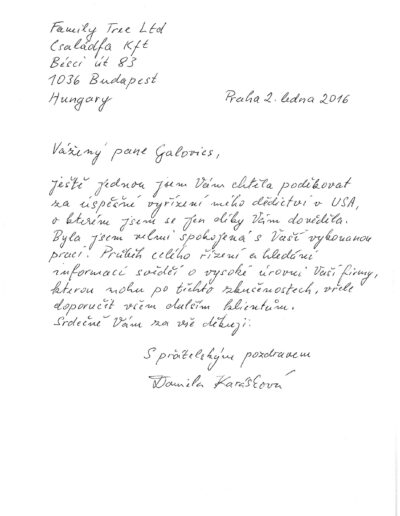 Family Tree Ltd
Családfa Kft
Bécsi út 83
1036 Budapest
Hungary
Praha 2. ledna 2016
Vážený pane Galovics,
ještě jednou jsem Vám chtěla poděkovat
za úspěšné vyřízení mého dědictví v USA,
o kterém jsem se jen díky Vám dověděla.
Byla jsem velmi spokojená s Vaší vykonanou
prací. Průběh celého řízení a hledání
informací svědčí o vysoké úrovni Vaší firmy,
kterou mohu po těchto zkušenostech, vřele
doporučit všem dalším klientům.
Srdečně Vám za vše děkuji.
S přátelským pozdravem
Daniela